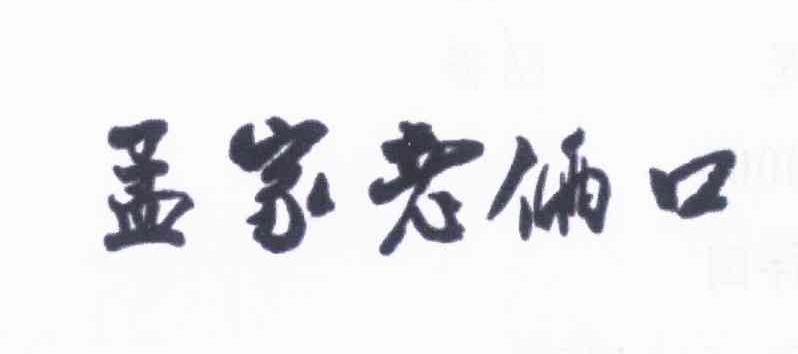 孟家老俩口